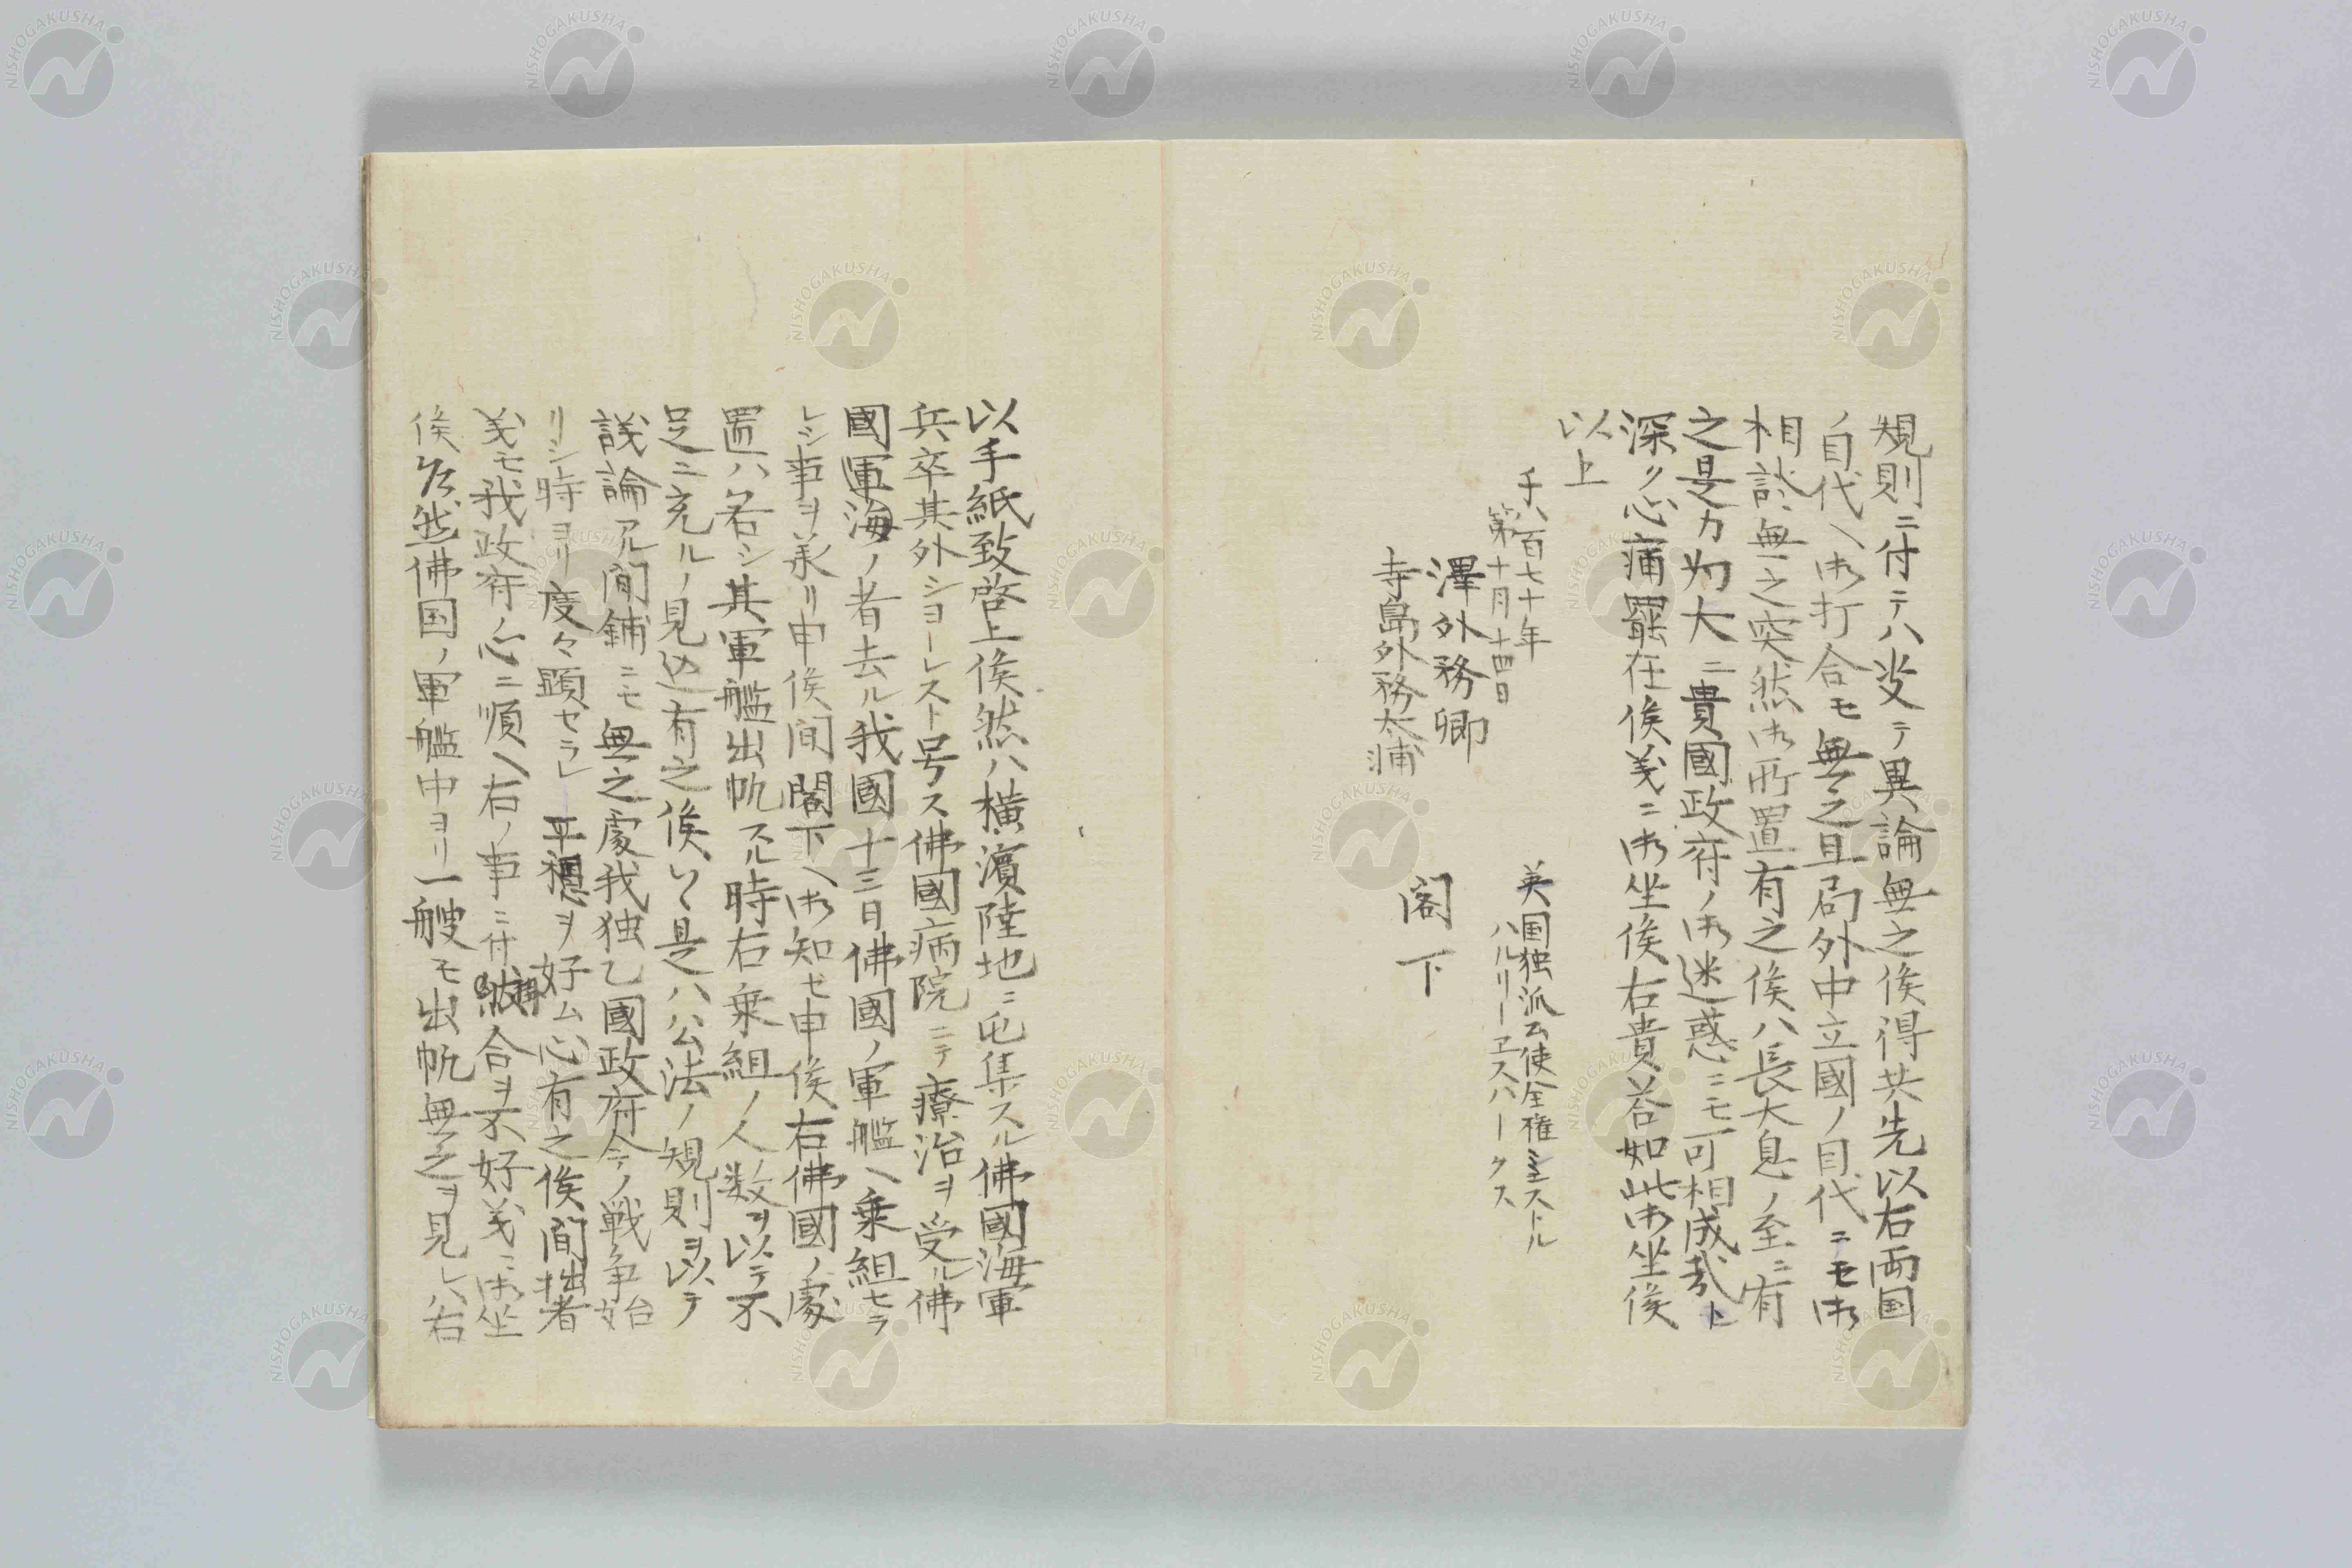 規則ニ付テハ曽テ異論無之候得共先以右両国
ノ目代ヘ御打合モ無之且局外中立國ノ目代ニモ御
相談無之突然御所置有之候ハ長大息ノ至ニ有
之是カ為大ニ貴國政府ノ御迷惑ニモ可相成哉ト
深ク心痛罷在候義ニ御坐候右貴答如此御坐候
以上
千八百七十年
第十月十四日
英国独派公使全権ミニストル
ハルリーヱスパークス
澤外務卿
寺島外務太浦
閣下
以手紙致啓上候然ハ横濱陸地ニ屯集スル佛國海軍
兵卒其外ショーレスト号ス佛國病院ニテ療治ヲ受ル佛
國軍海ノ者去ル我國十三日佛國ノ軍艦ヘ乗組セラ
レシ事ヲ承リ申候間閣下ヘ御知セ申候右佛國ノ處
置ハ若シ其軍艦出帆スル時右乗組ノ人数ヲ以テ不
足ニ充ルノ見込有之候ハヽ是ハ公法ノ規則ヲ以テ
議論アル間鋪ニモ無之處我独乙國政府今ノ戦争始
リシ時ヨリ度々顕セラレ平穏ヲ好ム心有之候間拙者
義モ我政府ノ心ニ順ヘ右ノ事ニ付掛合ヲ不好義ニ御坐
候乍然佛国ノ軍艦中ヨリ一艘モ出帆無之ヲ見レハ右
NISHOGAKUSHA